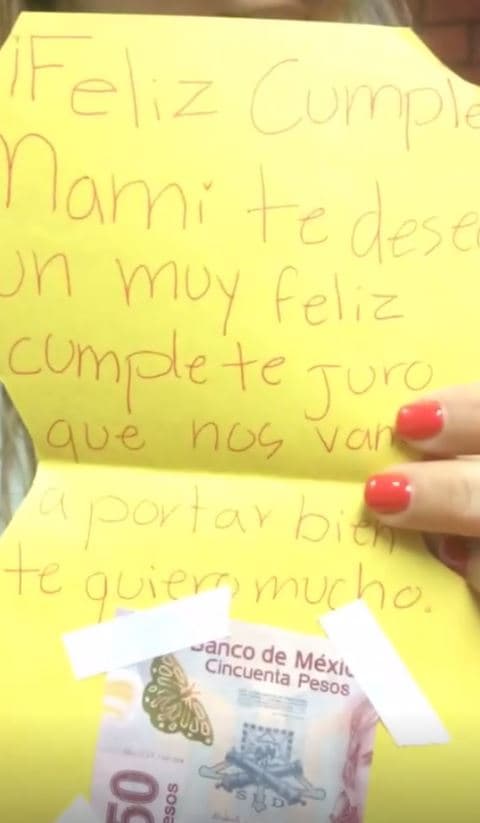 ¡Feliz Cumple
Mami te dese
un muy feliz
cumple te juro
que nos van
a portar bien
te quiero mucho.
Banco de Méxic
Cincuenta Pesos
50
pesos
S D